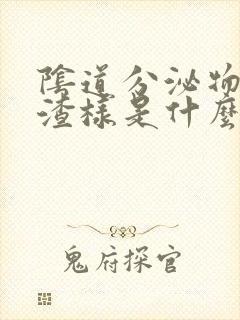 陰道分泌物
渣樣是什麼
鬼府探官